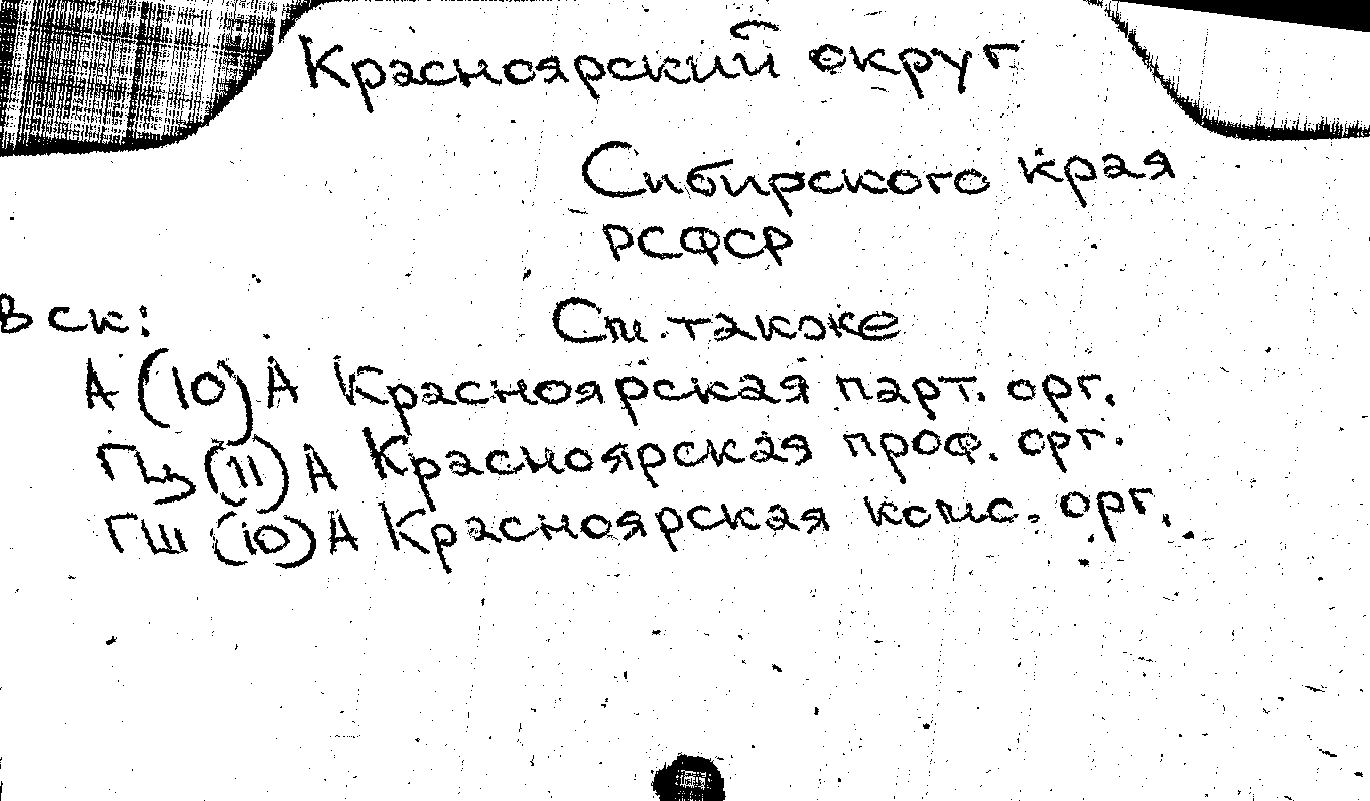 Красноярский округ
Сибирского края
РСФСР
В ск: См. также
А (10) А Красноярская парт. орг.
(11) А Красноярская проф. орг.
ГШ (10) А Красноярская комс. орг.